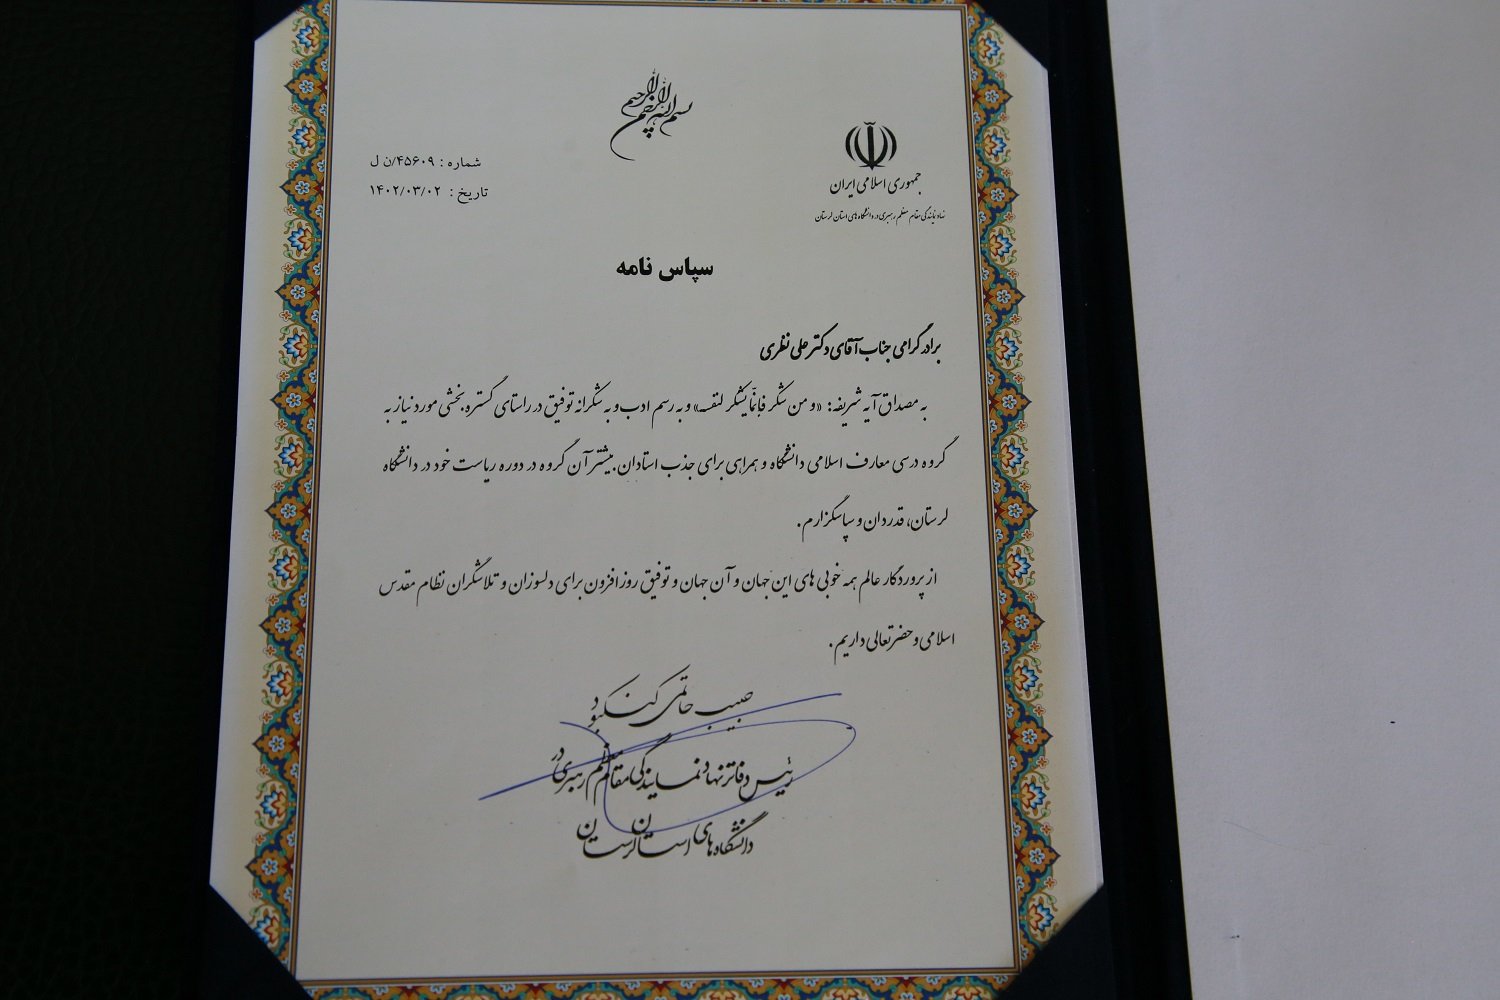 بسم الله الرحمن الرحیم
جمهوری اسلامی ایران
نهاد نمایندگی مقام معظم رهبری در دانشگاه های استان لرستان
شماره : ۴۵۶۰۹/ن ل
تاریخ : ۱۴۰۲/۰۳/۰۲
سپاس نامه
برادر گرامی جناب آقای دکتر علی نظری
به مصداق آیه شریفه: «و من شکر فإنّما یشکر لنفسه» و به رسم ادب و به شکرانه توفیق در راستای گستره بخشی مورد نیاز به
گروه درسی معارف اسلامی دانشگاه و همراهی برای جذب استادان بیشتر آن گروه در دوره ریاست خود در دانشگاه
لرستان، قدردان و سپاسگزارم.
از پروردگار عالم همه خوبی های این جهان و آن جهان و توفیق روز افزون برای دلسوزان و تلاشگران نظام مقدس
اسلامی و حضرتعالی داریم.
حبیب حاتمی کنکبود
رئیس دفاتر نهاد نمایندگی مقام معظم رهبری در
دانشگاه های استان لرستان